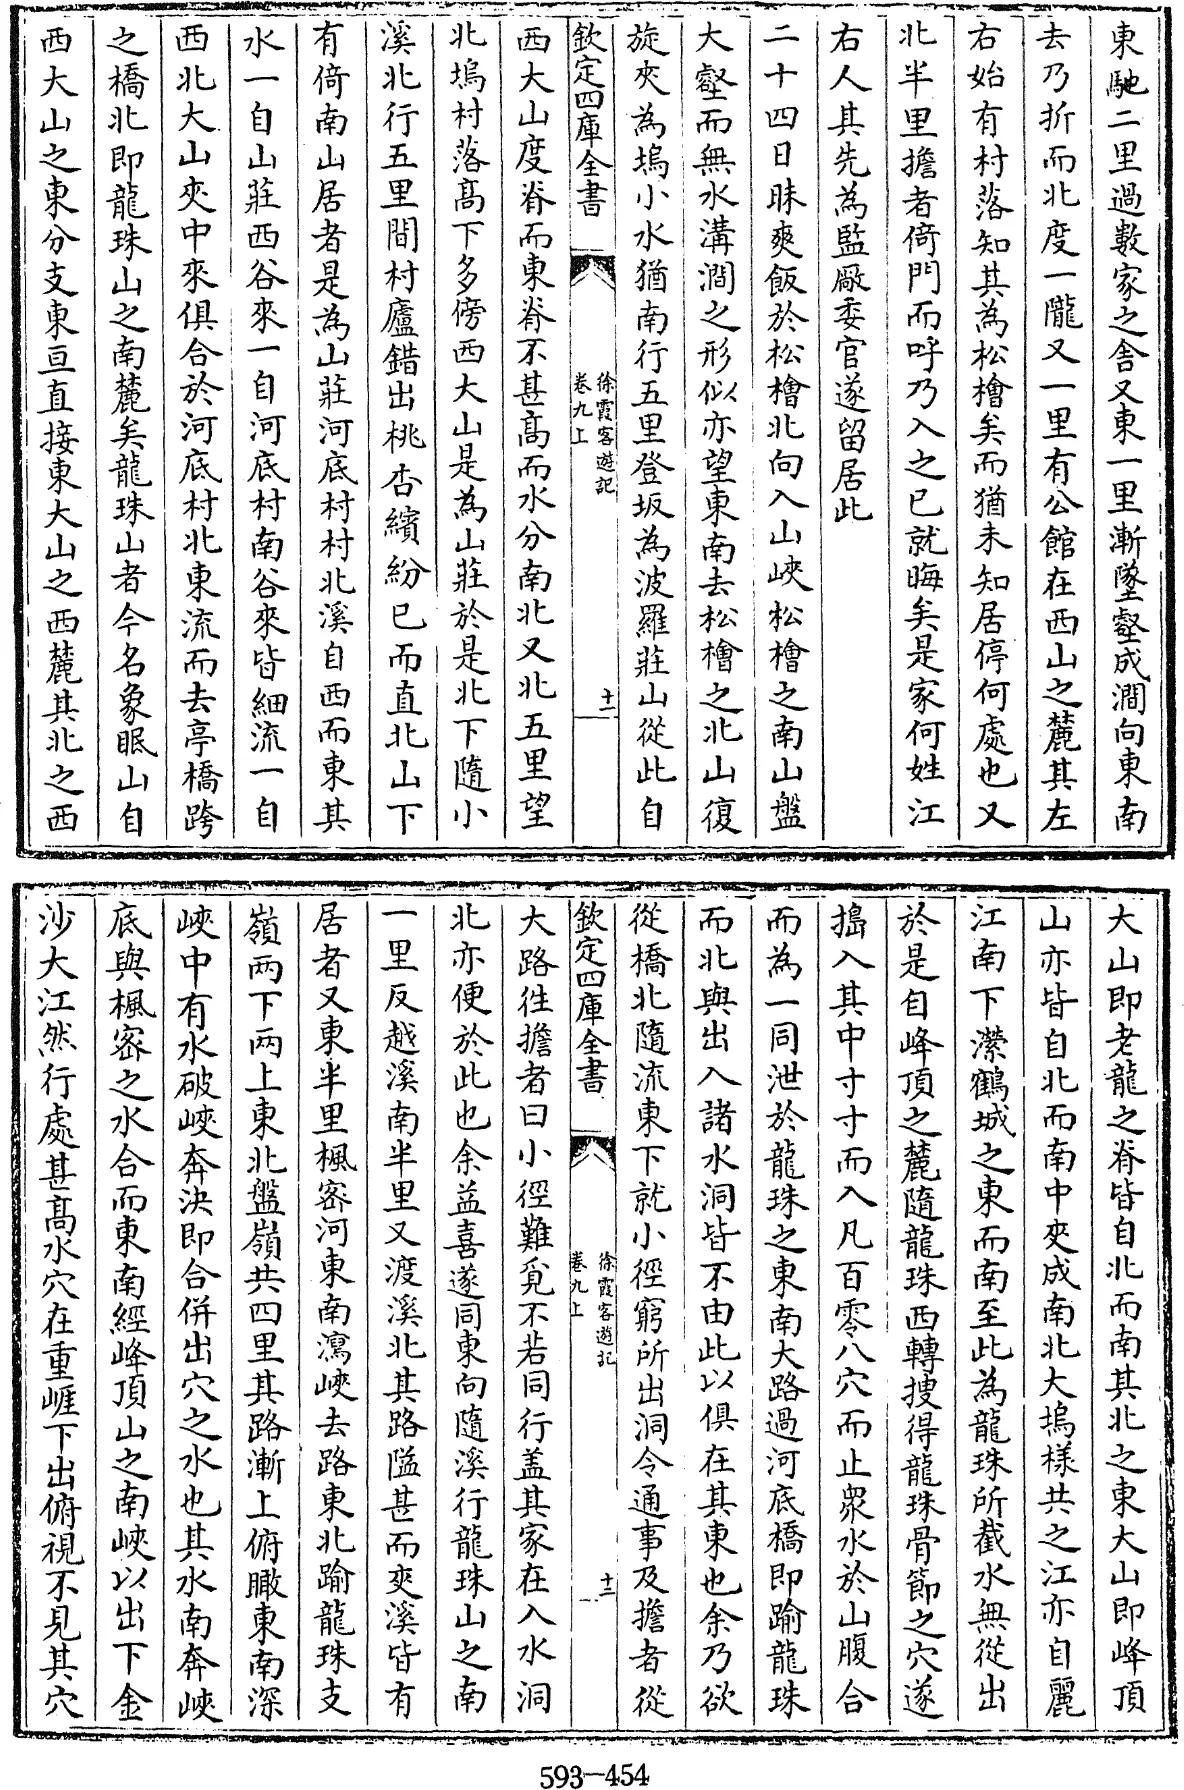 東馳二里過數家之舍又東一里漸墜壑成澗向東南
去乃折而北度一隴又一里有公館在西山之麓其左
右始有村落知其為松檜矣而猶未知居停何處也又
北半里擔者倚門而呼乃入之已就晦矣是家何姓江
右人其先為監廠委官遂留居此
二十四日昧爽飯於松檜北向入山峽松檜之南山盤
大壑而無水溝澗之形似亦望東南去松檜之北山復
旋夾為塢小水猶南行五里登坂為波羅莊山從此自
欽定四庫全書
徐霞客遊記
卷九上
十一
西大山度脊而東脊不甚高而水分南北又北五里望
北塢村落高下多傍西大山是為山莊於是北下隨小
溪北行五里間村廬錯出桃杏繽紛已而直北山下
有倚南山居者是為山莊河底村村北溪自西而東其
水一自山莊西谷來一自河底村南谷來皆細流一自
西北大山夾中來俱合於河底村北東流而去亭橋跨
之橋北即龍珠山之南麓矣龍珠山者今名象眠山自
西大山之東分支東亘直接東大山之西麓其北之西
大山即老龍之脊皆自北而南其北之東大山即峰頂
山亦皆自北而南中夾成南北大塢樣共之江亦自麗
江南下瀠鶴城之東而南至此為龍珠所截水無從出
於是自峰頂之麓隨龍珠西轉捜得龍珠骨節之穴遂
搗入其中寸寸而入凡百零八穴而止衆水於山腹合
而為一同泄於龍珠之東南大路過河底橋即踰龍珠
而北與出入諸水洞皆不由此以俱在其東也余乃欲
從橋北隨流東下就小徑窮所出洞令通事及擔者從
欽定四庫全書
徐霞客遊記
卷九上
十二
大路徃擔者曰小徑難覓不若同行盖其家在入水洞
北亦便於此也余益喜遂同東向隨溪行龍珠山之南
一里反越溪南半里又渡溪北其路隘甚而夾溪皆有
居者又東半里楓密河東南瀉峽去路東北踰龍珠支
嶺兩下兩上東北盤嶺共四里其路漸上俯瞰東南深
峽中有水破峽奔決即合併出穴之水也其水南奔峽
底與楓密之水合而東南經峰頂山之南峽以出下金
沙大江然行處甚高水穴在重崖下出俯視不見其穴
593-454